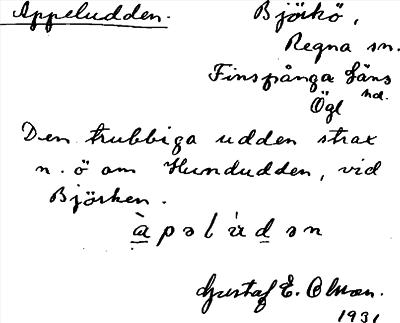 Appeludden.
Björkö,
Regna sn.
Finspånga läns
hd.
Ögl
Den trubbiga udden strax
n. ö om Hundudden, vid
Björken.
àpəlúdən
Gustaf E. Olsson.
1931